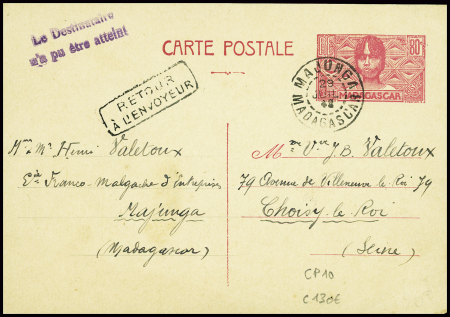 Le Destinataire
n'a pu être atteint
CARTE POSTALE
80c
MADAGASCAR
MAJUNGA
29
MADAGASCAR
RETOUR
À L'ENVOYEUR
Henri Valetoux
Franco-Malgache d'Entreprises
Majunga
(Madagascar)
Mme Vve J.B. Valetoux
79 Avenue de Villeneuve le Roi 79
Choisy-le-Roi
(Seine)
CP10
C130€